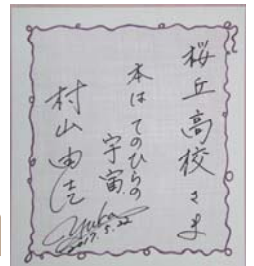 桜丘高校さま
本は てのひらの
宇宙
村山由佳
Yuka
2017.5.22